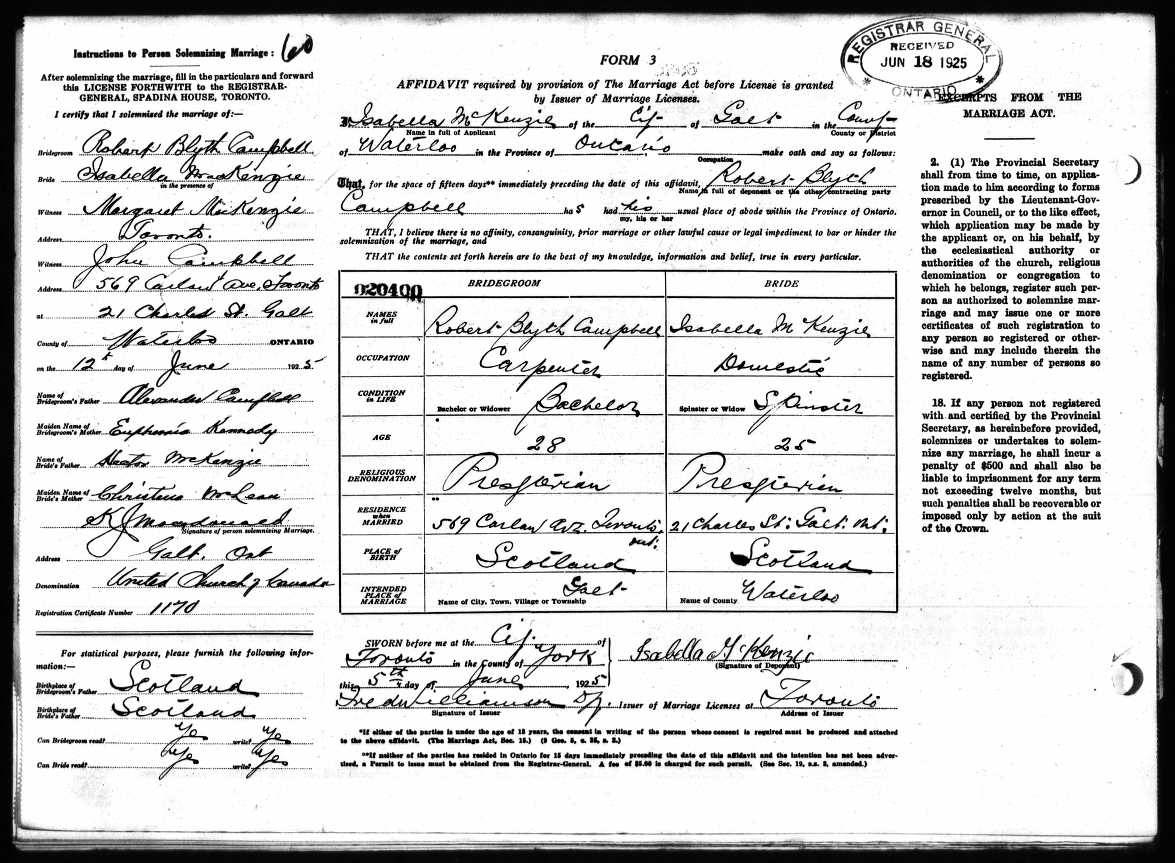 Instructions to Person Solemnizing Marriage: 60
After solemnizing the marriage, fill in the particulars and forward
this LICENSE FORTHWITH to the REGISTRAR-
GENERAL, SPADINA HOUSE, TORONTO.
I certify that I solemnized the marriage of:—
Bridegroom Robert Blyth Campbell
Bride Isabella MacKenzie
in the presence of
Witness Margaret MacKenzie
Address Toronto.
Witness John Campbell
Address 569 Carlaw Ave. Toronto
at 21 Charles St. Galt
County of Waterloo ONTARIO
on the 12th day of June 1925.
Name of Bridegroom's Father Alexander Campbell
Maiden Name of Bridegroom's Mother Euphemia Kennedy
Name of Bride's Father Hector McKenzie
Maiden Name of Bride's Mother Christena McLean
Macdonald
Signature of person solemnizing Marriage.
Address Galt. Ont
Denomination United Church of Canada
Registration Certificate Number 1170
For statistical purposes, please furnish the following infor-
mation:—
Birthplace of Bridegroom's Father Scotland
Birthplace of Bride's Father Scotland
Can Bridegroom read? Yes write? Yes
Can Bride read? Yes write? Yes
FORM 3
AFFIDAVIT required by provision of The Marriage Act before License is granted
by Issuer of Marriage Licenses.
I, Isabella McKenzie of the City of Galt in the County
Name in full of Applicant County or District
of Waterloo in the Province of Ontario make oath and say as follows:
Occupation
That, for the space of fifteen days** immediately preceding the date of this affidavit, Robert Blyth
Name in full of deponent or the other contracting party
Campbell has had his usual place of abode within the Province of Ontario.
my, his or her
THAT, I believe there is no affinity, consanguinity, prior marriage or other lawful cause or legal impediment to bar or hinder the
solemnization of the marriage, and
THAT the contents set forth herein are to the best of my knowledge, information and belief, true in every particular.
020400 BRIDEGROOM BRIDE
NAMES in full Robert Blyth Campbell Isabella McKenzie
OCCUPATION Carpenter Domestic
CONDITION in LIFE Bachelor or Widower Bachelor Spinster or Widow Spinster
AGE 28 25
RELIGIOUS DENOMINATION Presgterian Presgterian
RESIDENCE when MARRIED 569 Carlaw Av. Toronto, Ont: 21 Charles St: Galt: Ont:
PLACE of BIRTH Scotland Scotland
INTENDED PLACE of MARRIAGE Name of City, Town, Village or Township Galt Name of County Waterloo
SWORN before me at the City of
Toronto in the County of York
this 5th day of June 1925
Fred Williamson Dy. Issuer of Marriage Licenses at Toronto
Signature of Issuer Address of Issuer
Isabella McKenzie
(Signature of Deponent)
*If either of the parties is under the age of 18 years, the consent in writing of the person whose consent is required must be produced and attached
to the above affidavit. (The Marriage Act, Sec. 15.) (9 Geo. 5, c. 35, s. 2.)
**If neither of the parties has resided in Ontario for 15 days immediately preceding the date of this affidavit and the intention has not been adver-
tised, a Permit to issue must be obtained from the Registrar-General. A fee of $5.00 is charged for such permit. (See Sec. 19, s.s. 2, amended.)
REGISTRAR GENERAL
RECEIVED
JUN 18 1925
ONTARIO
EXCERPTS FROM THE
MARRIAGE ACT.
2. (1) The Provincial Secretary
shall from time to time, on appli-
cation made to him according to forms
prescribed by the Lieutenant-Gov-
ernor in Council, or to the like effect,
which application may be made by
the applicant or, on his behalf, by
the ecclesiastical authority or
authorities of the church, religious
denomination or congregation to
which he belongs, register such per-
son as authorized to solemnize mar-
riage and may issue one or more
certificates of such registration to
any person so registered or other-
wise and may include therein the
name of any number of persons so
registered.
18. If any person not registered
with and certified by the Provincial
Secretary, as hereinbefore provided,
solemnizes or undertakes to solem-
nize any marriage, he shall incur a
penalty of $500 and shall also be
liable to imprisonment for any term
not exceeding twelve months, but
such penalties shall be recoverable or
imposed only by action at the suit
of the Crown.